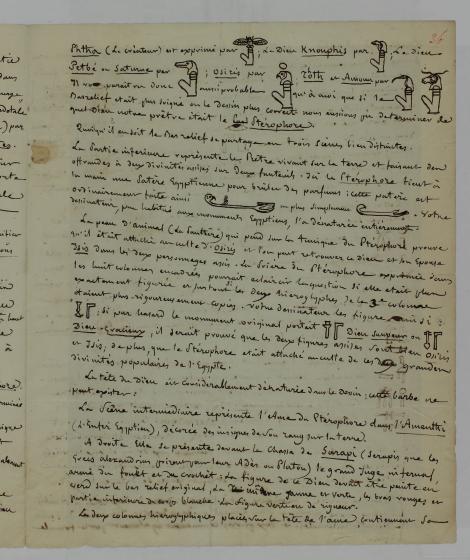 Phtha (Le créateur) est exprimé par ; Le Dieu Knouphis par ; Le dieu
Petbé ou Saturne par ; Osiris par ; Tôth et Amoun par
Il vous paraîtra donc aussi probable qu'à moi que si le
Basrelief était plus soigné ou le dessin plus correct nous eussions pu déterminer de
quel Dieu notre prêtre était le Stérophore.
Quoiqu'il en soit le Bas relief se partage en trois scènes bien distinctes.
La Partie inférieure représente le Prêtre vivant sur la terre et faisant des
offrandes à deux divinités assises sur deux fauteuils. Ici le Pterophore tient à
la main une Patère Egyptienne pour brûler des parfums : cette patère est
ordinairement faite ainsi ou plus simplement . Votre
dessinateur, peu habitué aux monuments Egyptiens, l'a dénaturée entièrement.
La peau d'animal (la Panthère) qui pend sur la tunique du Ptérophore prouve
qu'il était attaché au culte d'Osiris et l'on peut retrouver ce dieu et son épouse
Isis dans les deux personnages assis. La Prière du Ptérophore exprimée dans
les huit colonnes encadrées pourrait éclaircir la question si elle était plus
exactement figurée et surtout si les deux hiéroglyphes de la 3e colonne
étaient plus rigoureusement copiés. Votre dessinateur les figure ainsi :
; si par hasard le monument original portait Dieu Sauveur ou
Dieu-Gracieux, il serait prouvé que les deux figures assises sont bien Osiris
et Isis ; de plus, que le Stérophore etait attaché au culte de les deux grandes
divinités populaires de l'Egypte.
La tête du Dieu est considérablement dénaturée dans le dessin ; cette barbe ne
peut exister :
La Scène intermédiaire représente l'Ame du Ptérophore dans l'Amenthi
(L'Enfer Egyptien), décorée des insignes de son rang sur la terre.
A droite Elle se présente devant la Chasse de Sarapi (Serapis que les
Grecs alexandrins prirent pour leur Adès ou Pluton), le grand Juge infernal,
armé du fouet et du crochet : La figure de ce Dieu devait être peinte en
verd sur le bas relief original, la jaune et verte, les bras rouges et
partie inférieure du corps blanche. La figure verte est de rigueur.
Les deux colonnes hiéroglyphiques placées sur la tête de l'ame contiennent son